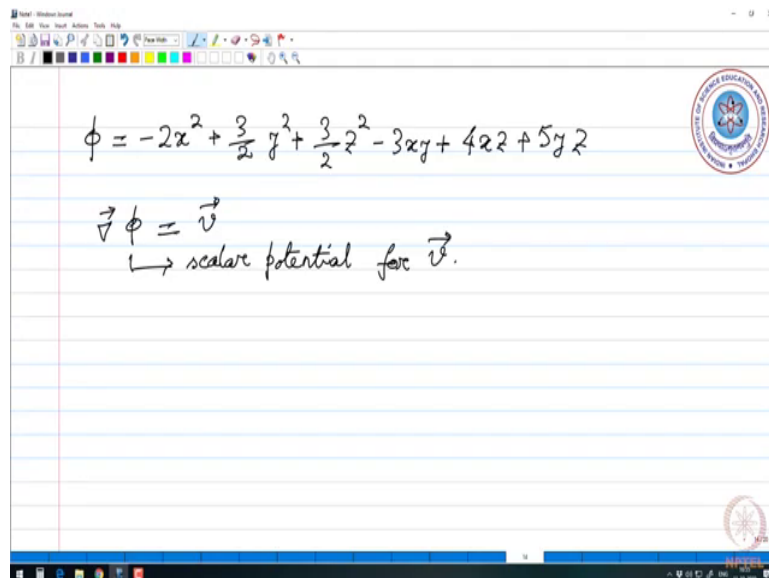 Note1 - Windows Journal
File Edit View Insert Actions Tools Help
Page Width
B I
ϕ = -2x² + 3/2 y² + 3/2 z² - 3xy + 4xz + 5yz
∇⃗ ϕ = v⃗
↳ scalar potential for v⃗.
INDIAN INSTITUTE OF SCIENCE EDUCATION AND RESEARCH BHOPAL
14
NPTEL
ENG